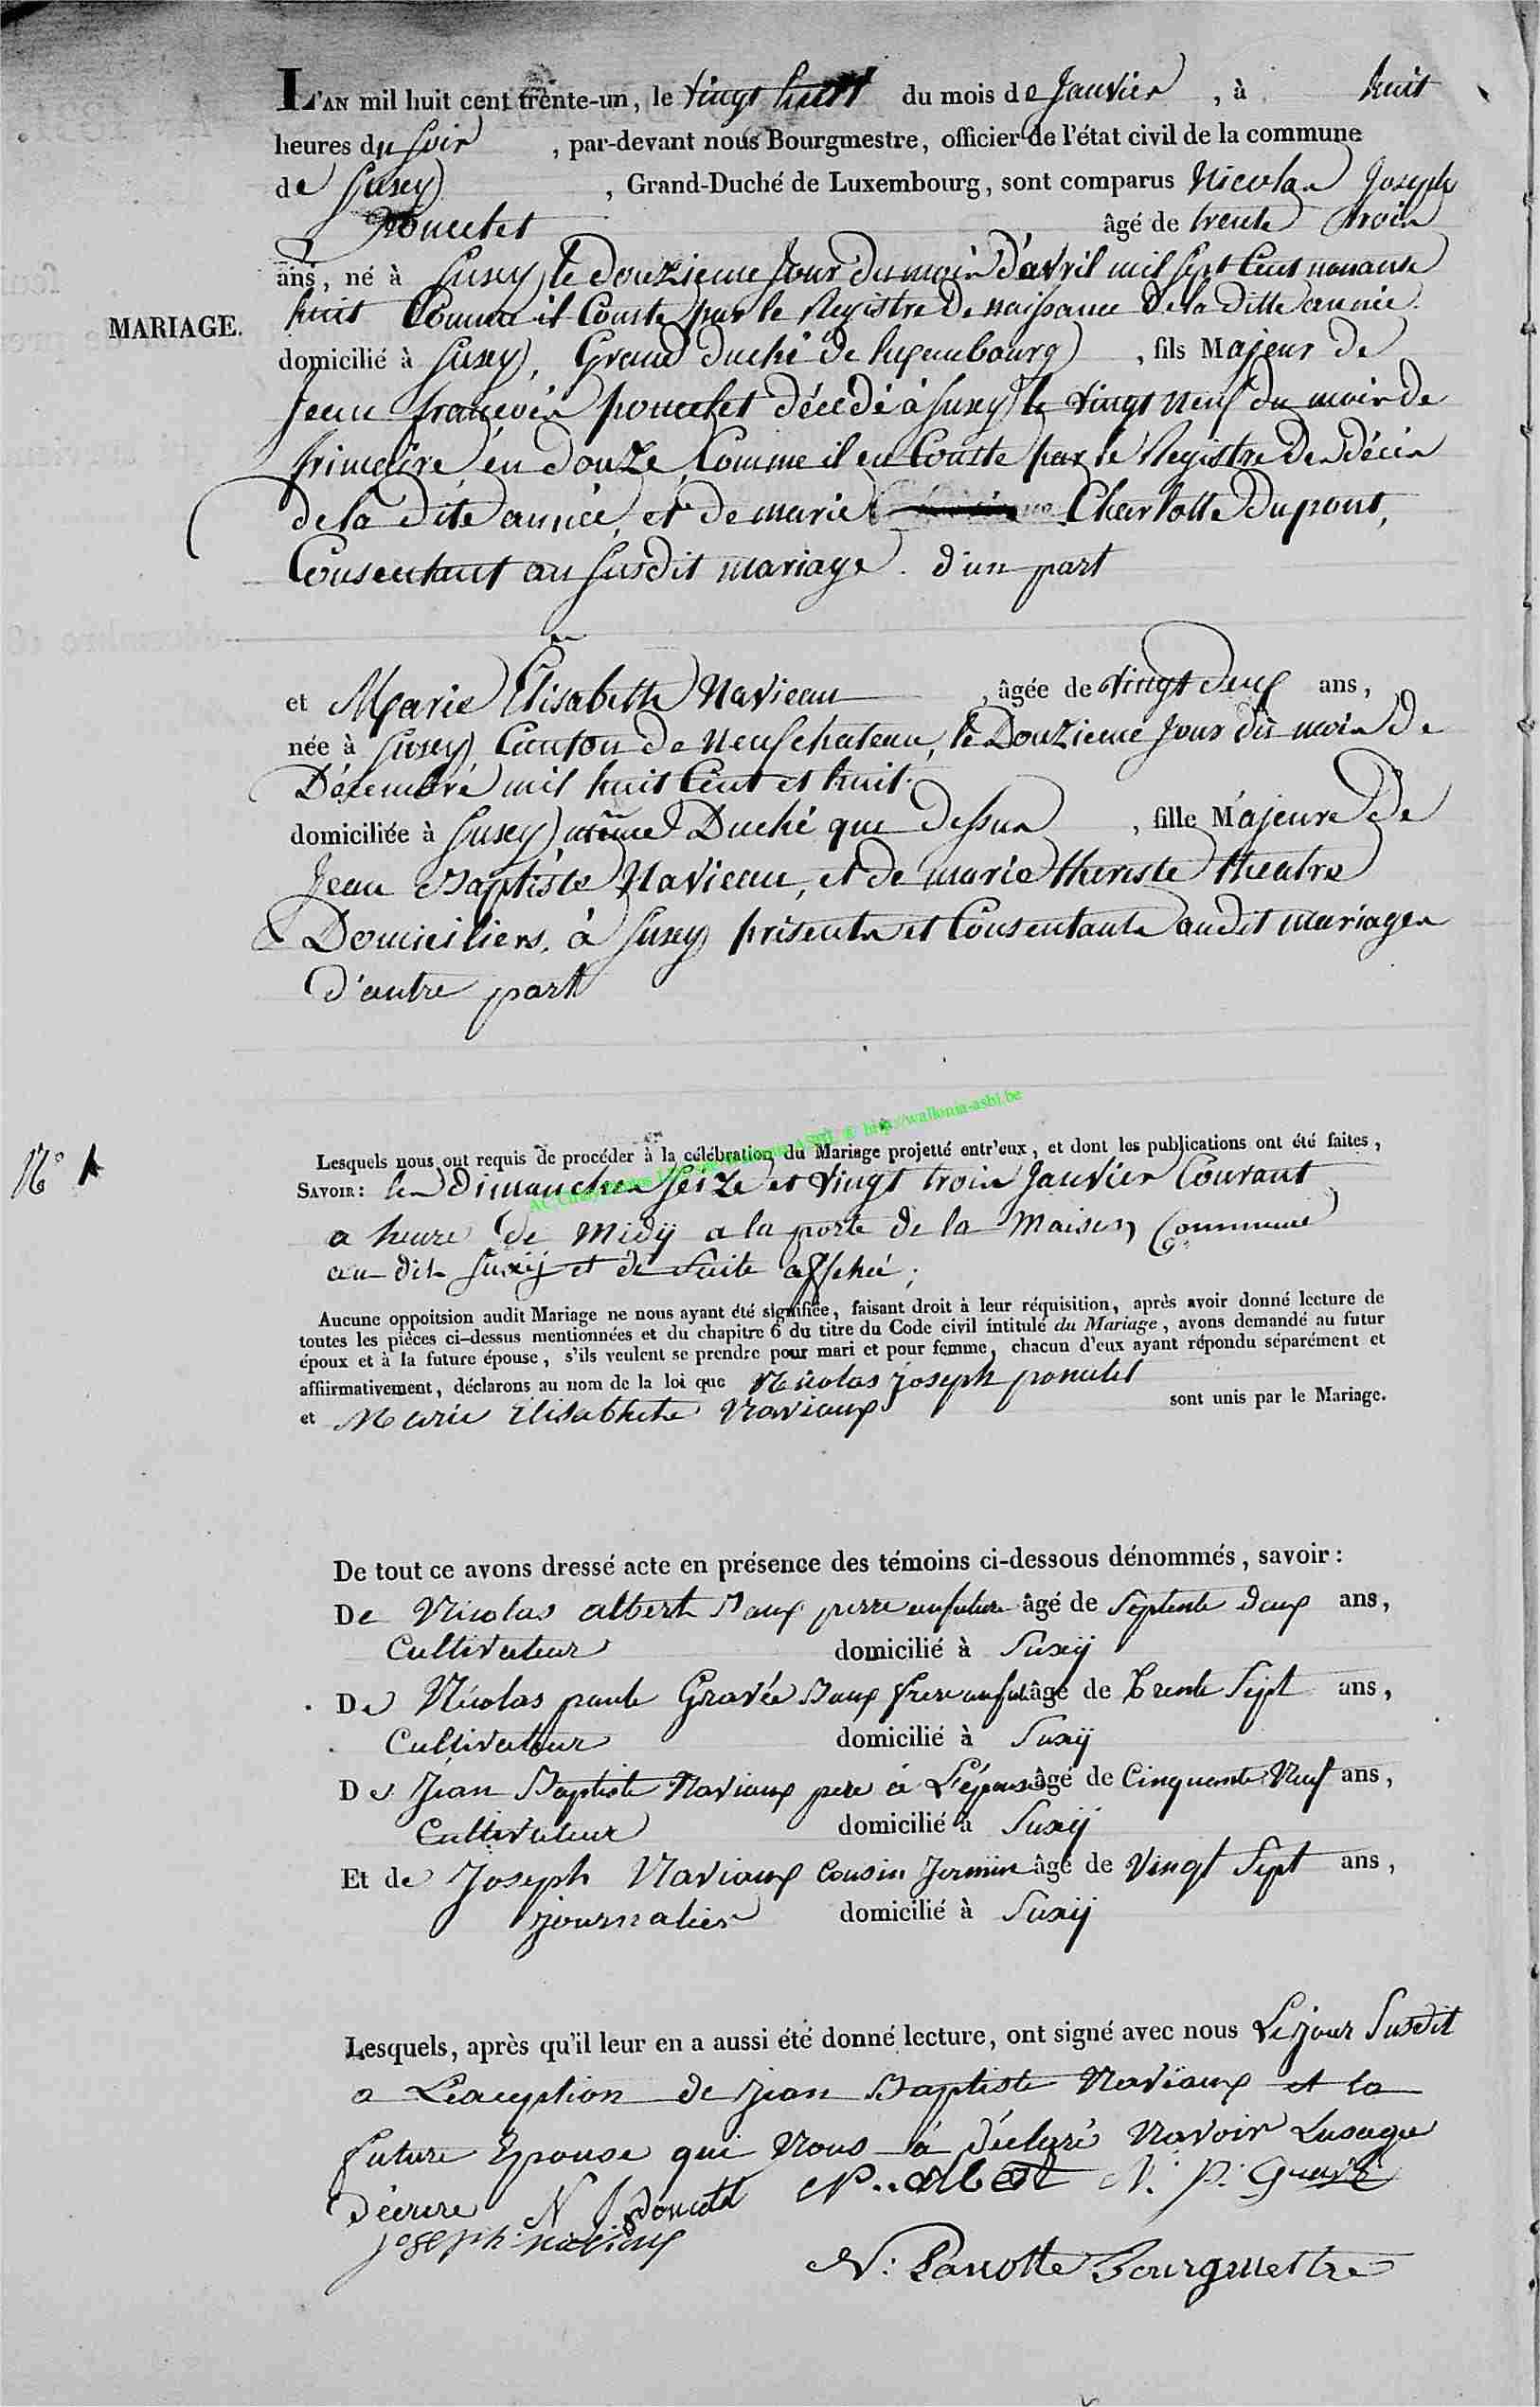 L'AN mil huit cent trente-un, le vingt huit du mois de Janvier, à huit
heures du Soir, par-devant nous Bourgmestre, officier de l'état civil de la commune
de Suxey, Grand-Duché de Luxembourg, sont comparus Nicolas Joseph
Poncelet âgé de trente trois
ans, né à Suxey, le Douzieme Jour du mois d'avril mil sept Cent nonante
huit Comme il Conste par le Registre De naissance De la Ditte année.
MARIAGE.
domicilié à Suxey, Grand Duché de Luxembourg, fils Majeur de
Jean françois poncelet décédé à Suxey le vingt neuf du mois de
frimaire en douze, Comme il en Conste par le Registre Des Décès
de la Dite année, et de marie Charlotte Dupont,
Consentant au Susdit mariage. d'un part
et Marie Elisabette Navieau, âgée de vingt deux ans,
née à Suxey, Canton de Neufchateau, le Douzieme Jour du mois de
Décembre mil huit Cent et huit.
domiciliée à Suxey même Duché que dessus, fille Majeure de
Jean Baptiste Navieau, et de marie thereste theatre
Domiciliers, à Suxey présents et Consentants audit mariages
D'autre part
AC http://wallonia-asbl.be
N° 1
Lesquels nous ont requis de procéder à la célébration du Mariage projetté entr'eux, et dont les publications ont été faites,
SAVOIR: les Dimanches Seize et vingt trois Janvier Courant
a heure de midÿ a la porte de la Maison Commune
au dit Suxÿ et de Suite affiché;
Aucune oppoitsion audit Mariage ne nous ayant été signifiée, faisant droit à leur réquisition, après avoir donné lecture de
toutes les pièces ci-dessus mentionnées et du chapitre 6 du titre du Code civil intitulé du Mariage, avons demandé au futur
époux et à la future épouse, s'ils veulent se prendre pour mari et pour femme, chacun d'eux ayant répondu séparément et
affiirmativement, déclarons au nom de la loi que Nicolas joseph poncelet
et Marie Elisabhete Naviaux sont unis par le Mariage.
De tout ce avons dressé acte en présence des témoins ci-dessous dénommés, savoir:
De Nicolas albert Baux perre au future âgé de Septente deux ans,
Cultivateur domicilié à Suxÿ
De Nicolas paule Gravée Baux frere au fut âgé de Trente Sept ans,
Cultivateur domicilié à Suxÿ
De Jean Baptiste Naviaux pere a L'épouse âgé de Cinquente Neuf ans,
Cultivateur domicilié à Suxÿ
Et de Joseph Naviaux Cousin Jermin âgé de Vingt Sept ans,
journalier domicilié à Suxÿ
Lesquels, après qu'il leur en a aussi été donné lecture, ont signé avec nous Le jour Susdit
a L'exception de jean Baptiste Naviaux et la
future Epouse qui Nous a déclaré Navoir Lusage
Décrire N J Poncelet N. Albert N. P. Gravé
joseph naviaux
N: Panotte Bourgmettre